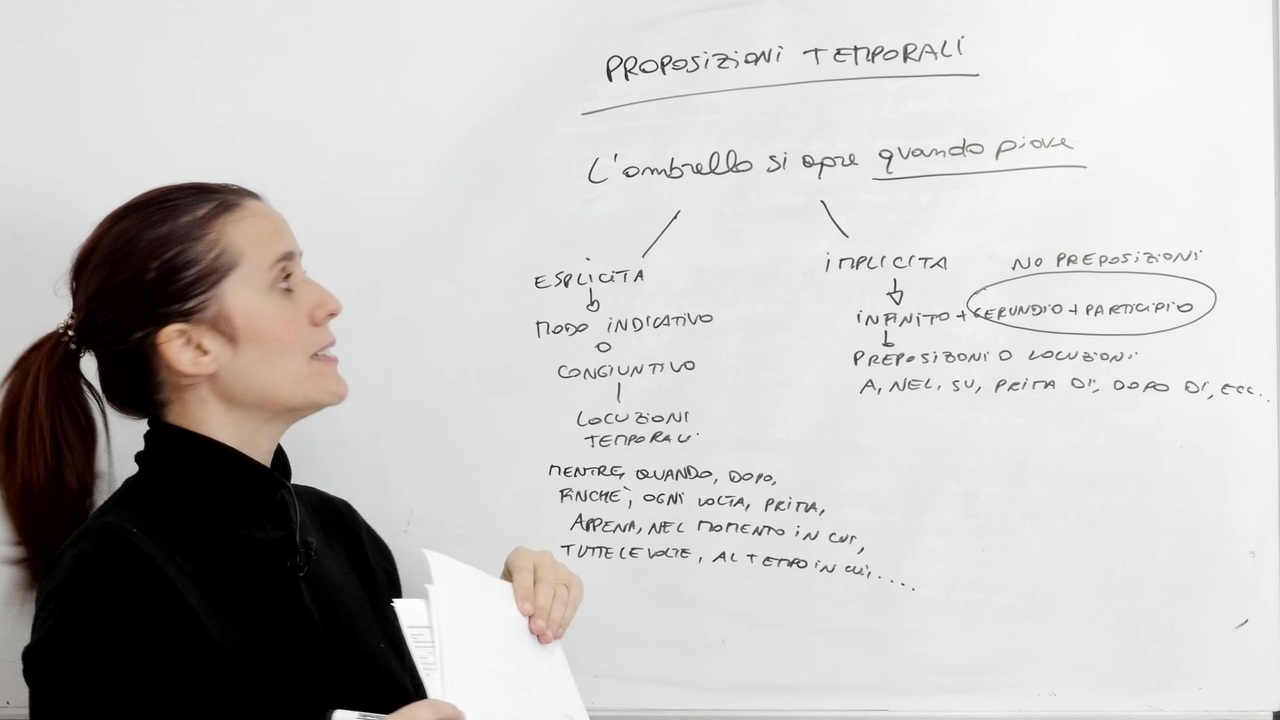 PROPOSIZIONI TEMPORALI
L'ombrello si apre quando piove
ESPLICITA
MODO INDICATIVO
O
CONGIUNTIVO
LOCUZIONI
TEMPORALI
MENTRE, QUANDO, DOPO,
FINCHÈ, OGNI VOLTA, PRIMA,
APPENA, NEL MOMENTO IN CUI,
TUTTE LE VOLTE, AL TEMPO IN CUI, ....
IMPLICITA
NO PREPOSIZIONI
INFINITO + GERUNDIO + PARTICIPIO
PREPOSIZIONI O LOCUZIONI
A, NEL, SU, PRIMA DI, DOPO DI, ECC..